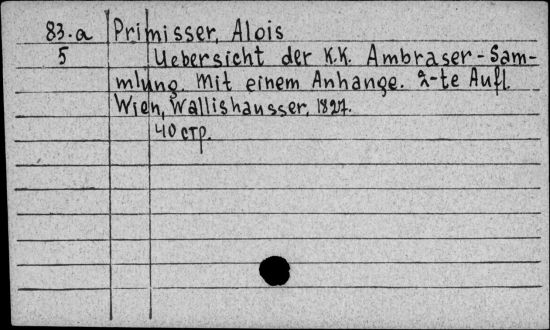 83.a Primisser, Alois
5 Uebersicht der K.K. Ambraser-Sam-
mlung. Mit einem Anhange. 2-te Aufl.
Wien, Wallishausser, 1827.
40 стр.